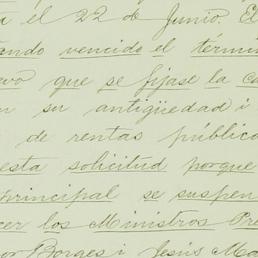 el 22 de Junio. El
ando vencido el térmi
evo que se fijase la ca
n su antigüedad i
de rentas públic
esta solicitud porque
principal se suspen
cer los Ministros Pre
or Borges i Jesús M